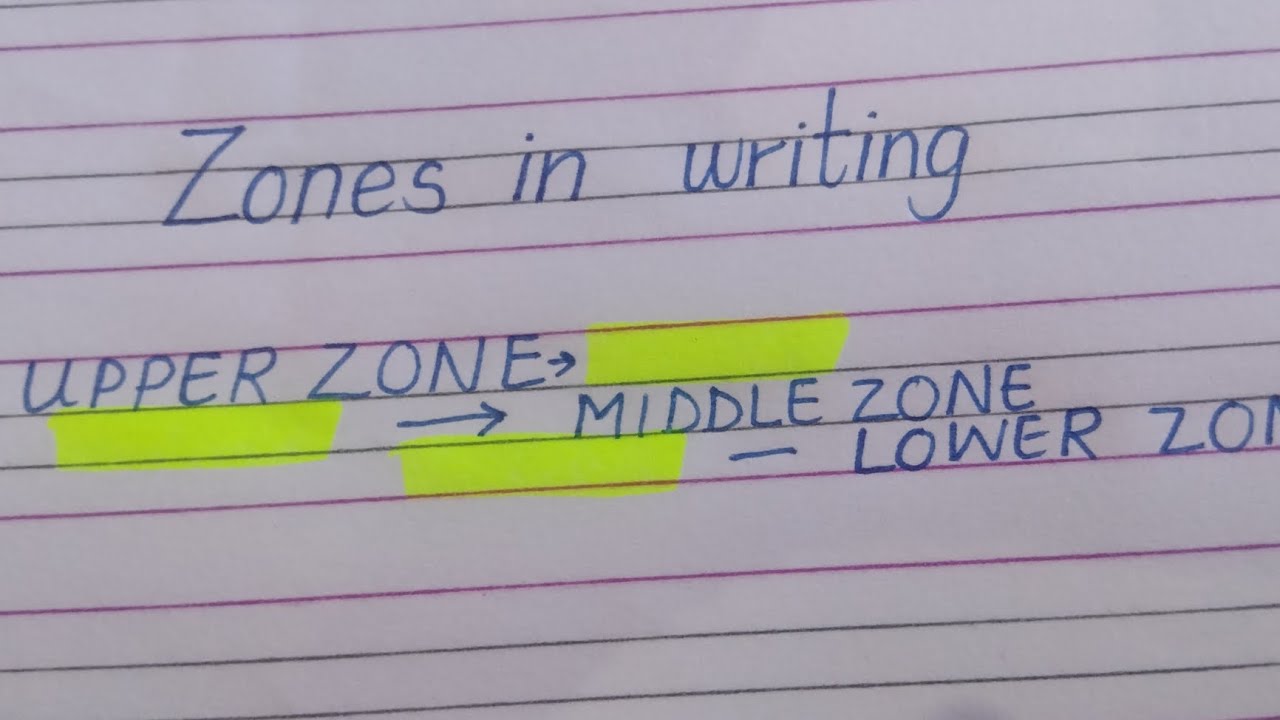 Zones in writing
UPPER ZONE→
→ MIDDLE ZONE
— LOWER ZON